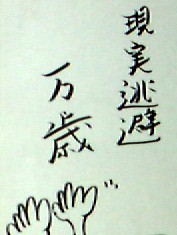 現実逃避
万歳